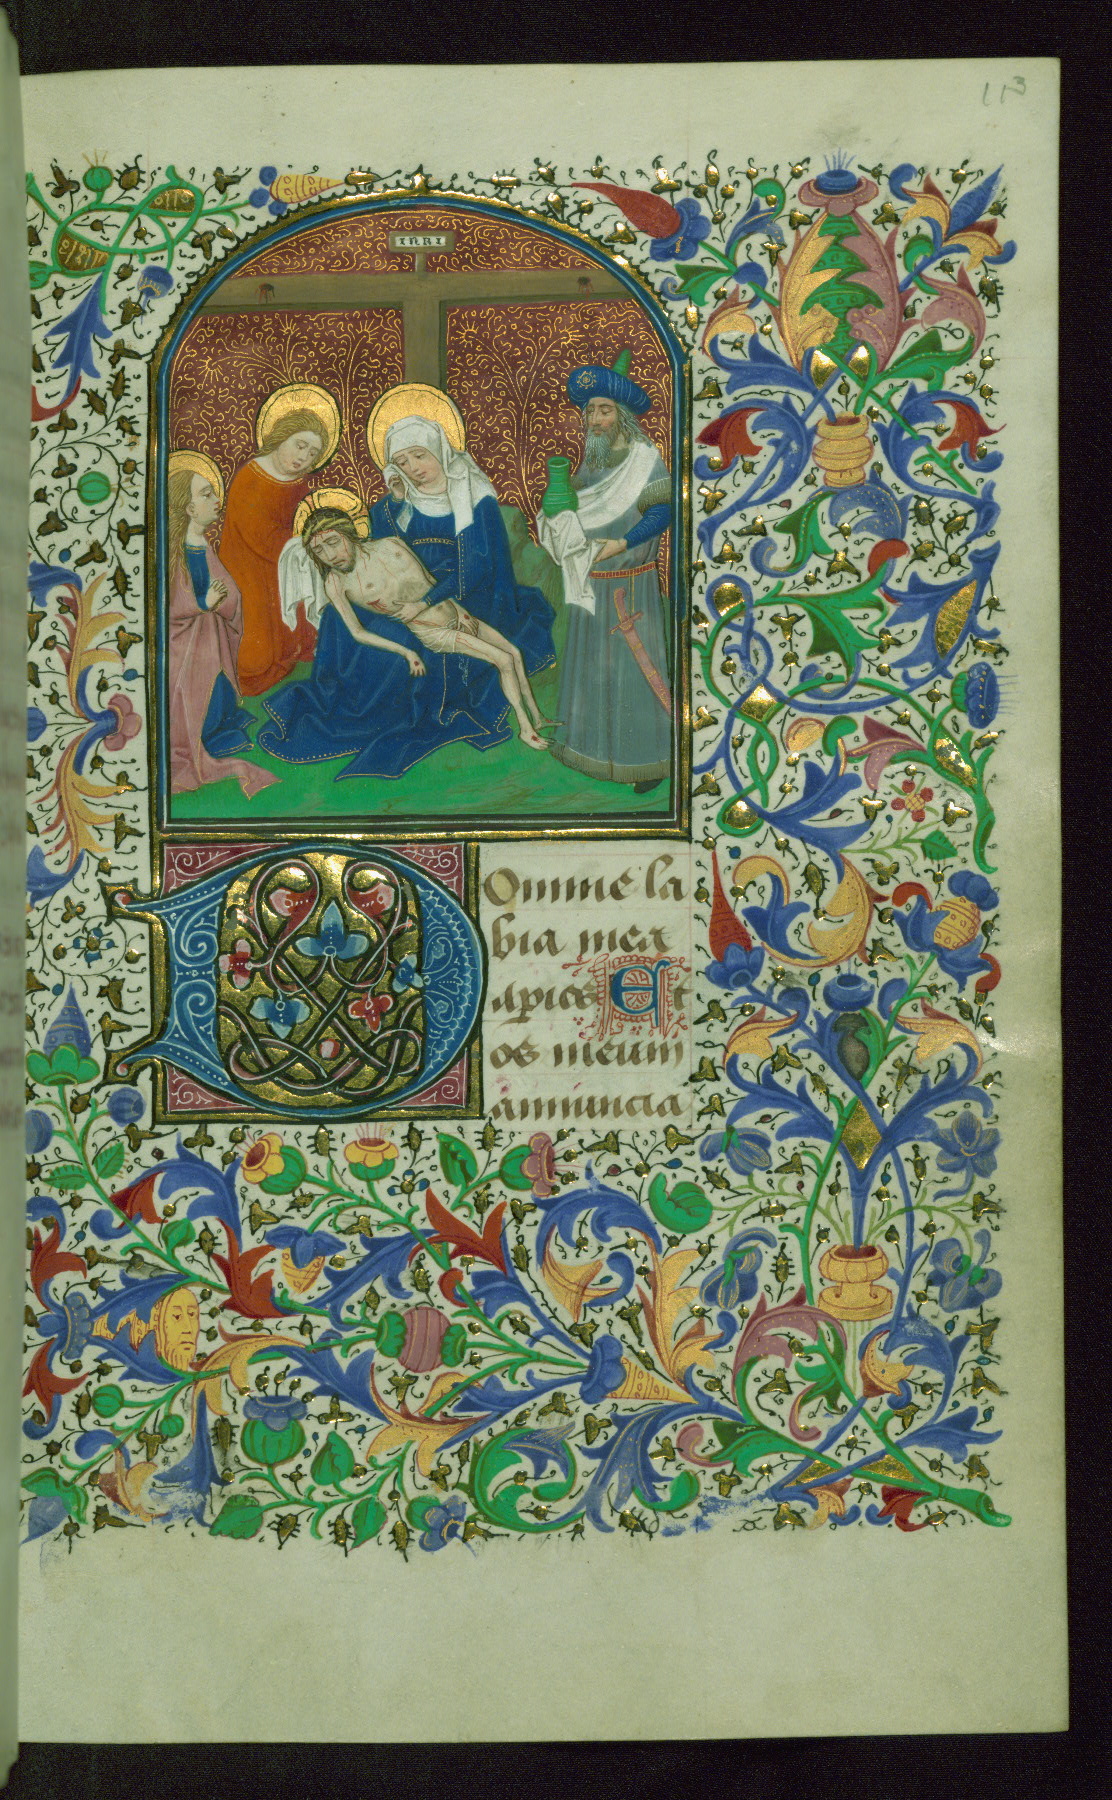 113
INRI
Domine la
bia mea
aperies Et
os meum
annuncia